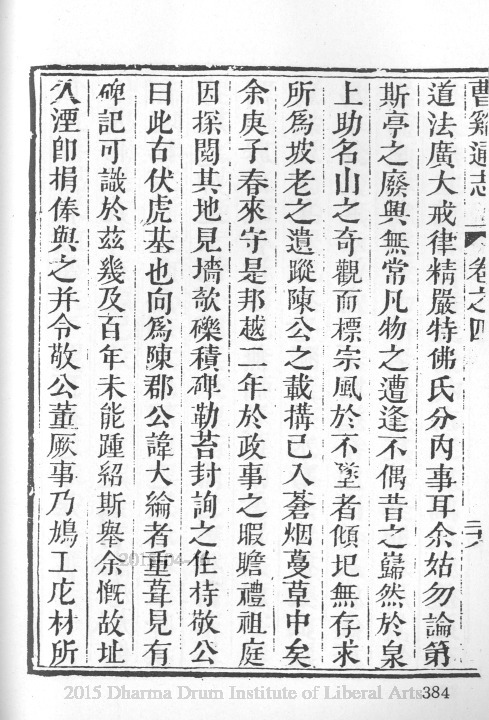 曹谿通志 卷之四
道法廣大戒律精嚴特佛氏分內事耳余姑勿論第
斯亭之廢興無常凡物之遭逢不偶昔之巋然於泉
上助名山之奇觀而標宗風於不墜者傾圯無存求
所爲坡老之遺蹤陳公之載搆已入蒼烟蔓草中矣
余庚子春來守是邦越二年於政事之暇瞻禮祖庭
因探閱其地見墻欹礫積碑勒苔封詢之住持敬公
曰此古伏虎基也向爲陳郡公諱大綸者重葺見有
碑記可識於茲幾及百年未能踵紹斯舉余慨故址
久湮卽捐俸與之并令敬公董厥事乃鳩工庀材所
2015 Dharma Drum Institute of Liberal Arts
384